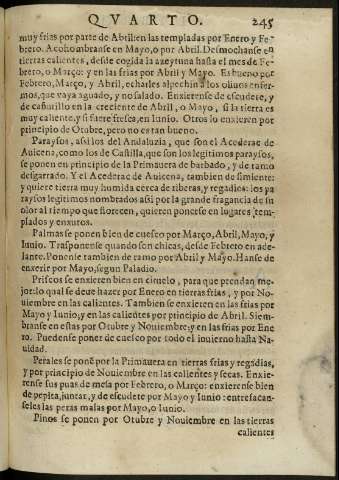 QVARTO. 245
muy frias por parte de Abril:en las templadas por Enero y Fe-
brero. Acohombranse en Mayo, o por Abril. Desmochanse en
tierras calientes, desde cogida la azeytuna hasta el mes de Fe-
brero, o Março: y en las frias por Abril y Mayo. Es bueno por
Febrero, Março, y Abril, echarles alpechin a los oliuos enfer-
mos, que vaya aguado, y no salado. Enxierense de escudete, y
de cañutillo en la creciente de Abril, o Mayo, si la tierra es
muy caliente, y si fuere fresca, en Iunio. Otros lo enxieren por
principio de Otubre, pero no es tan bueno.
Paraysos, assi los del Andaluzia, que son el Acederac de
Auicena, como los de Castilla, que son los legitimos paraysos,
se ponen en principio de la Primauera de barbado, y de ramo
desgarrado. Y el Acederac de Auicena, tambien de simiente:
y quiere tierra muy humida cerca de riberas, y regadios: los pa
raysos legitimos nombrados assi por la grande fragancia de su
olor al tiempo que florecen, quieren ponerse en lugares tem-
plados y enxutos.
Palmas se ponen bien de cuesco por Março, Abril, Mayo, y
Iunio. Trasponense quando son chicas, desde Febrero en ade-
lante. Ponense tambien de ramo por Abril y Mayo. Hanse de
enxerir por Mayo, segun Paladio.
Priscos se enxieren bien en ciruelo, para que prendan me-
jor: lo qual se deue hazer por Enero en tierras frias, y por No-
uiembre en las calientes. Tambien se enxieren en las frias por
Mayo y Iunio; y en las calientes por principio de Abril. Siem-
branse en estas por Otubre y Nouiembre: y en las frias por Ene
ro. Puedense poner de cuesco por todo el inuierno hasta Na-
uidad.
Perales se ponẽ por la Primauera en tierras frias y regadias,
y por principio de Nouiembre en las calientes y secas. Enxie-
rense sus puas de mesa por Febrero, o Março: enxierense bien
de pepita, juntar, y de escudete por Mayo y Iunio: entresacan-
seles las peras malas por Mayo, o Iunio.
Pinos se ponen por Otubre y Nouiembre en las tierras
calientes